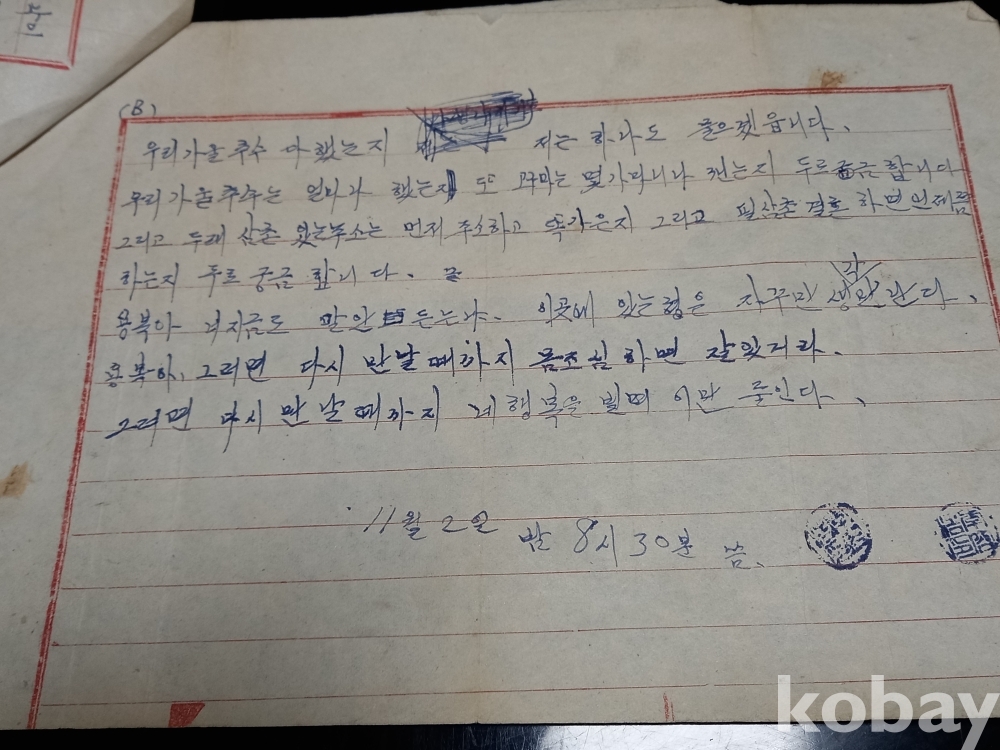 (8)
우리가을 추수 다 했는지 저는 하나도 몰으겠읍니다.
우리 가을 추수는 얼마나 했는지 또 몇가마니나 했는지 두르 궁금 합니다
그리고 두래 삼촌 있는 주소는 먼저 주소하고 똑가은지 그리고 필삼촌 결혼 하면 언제쯤
하는지 두르 궁금 합니다.
용복아 너지금도 말안 듣는냐. 이곳에 있는 형은 자꾸만 생각난다.
용복아, 그러면 다시 만날때까지 몸조심하면 잘있거라.
그러면 다시 만날때까지 네 행복을 빌며 이만 줄인다.
11월 2일 밤 8시 30분 씀.
kobay